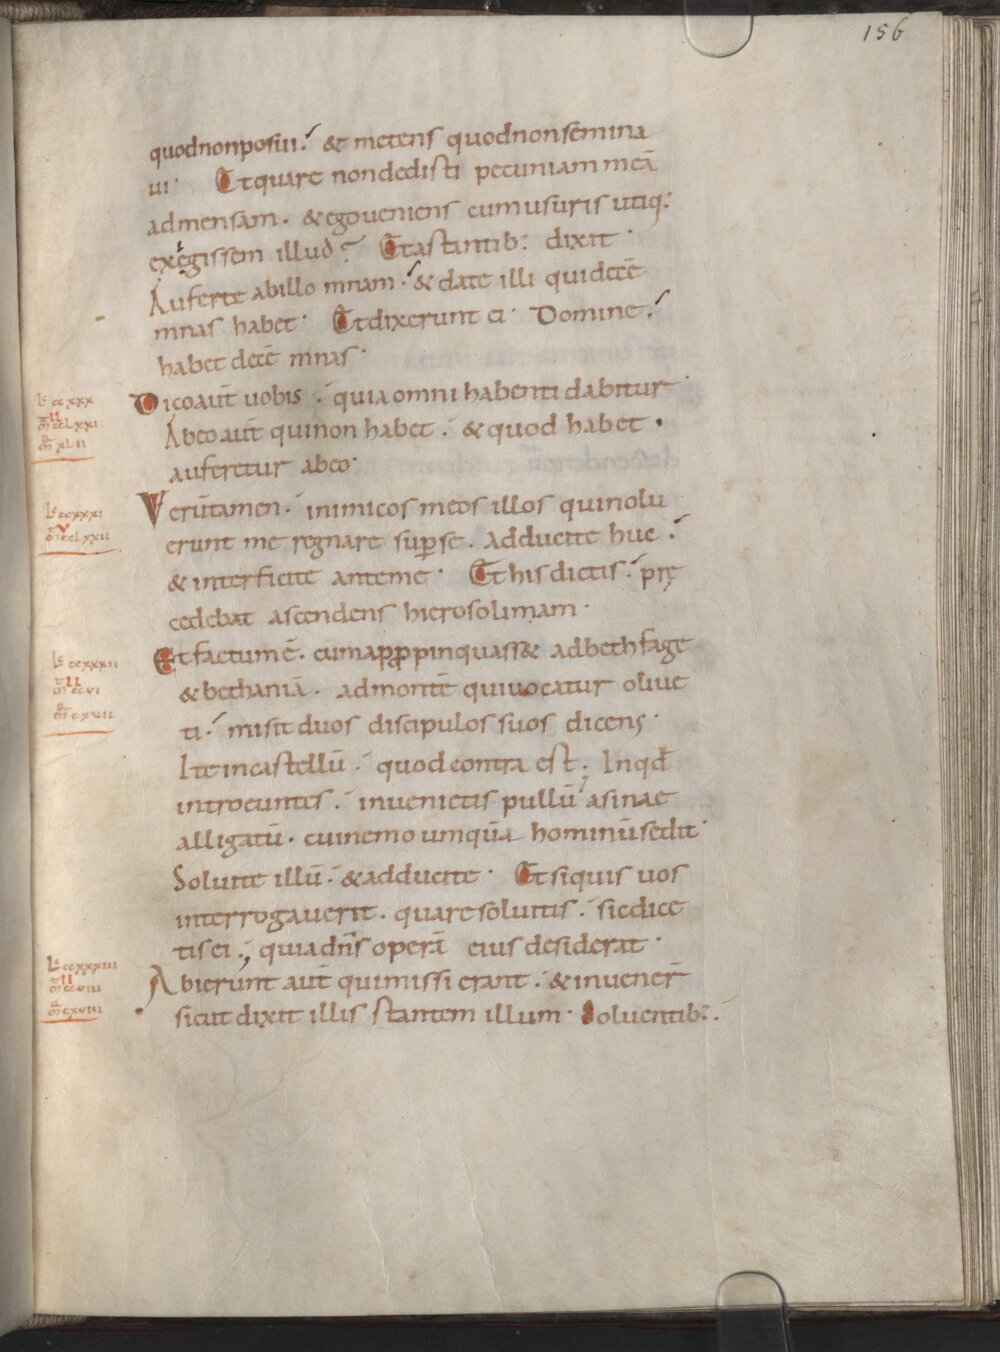 156
quodnonposui. & metens quodnonsemina
ui. Et quare nondedisti pecuniam meā
admensam. & egoueniens cumusuris utiq:
exegissem illud? Et astantib: dixit.
Auferte abillo mnam. & date illi quidecē
mnas habet. Et dixerunt ei. Domine.
habet decē mnas.
Lc ccxxx
Dicoaut̄ uobis. quia omni habenti dabitur.
m̄ cclxxi
Abeo aut̄ quinon habet. & quod habet.
m̄ xlii
auferetur abeo.
Lc ccxxxi
Verūtamen. inimicos meos illos quinolu
m̄ cclxxii
erunt me regnare sup̄se. Adducite huc.
& interficite anteme. Et his dictis. prę
cedebat ascendens hierosolimam.
Lc ccxxxii
Et factumē. cumappropinquass& adbethfage
m̄ ccvi
& bethaniā. admontē quiuocatur oliue
m̄ cxvii
ti. misit duos discipulos suos dicens.
Ite incastellū. quodcontra est. Inqd̄
introeuntes. inuenietis pullū asinae
alligatū. cuinemo umquā hominū sedit.
Soluite illū. & adducite. Et siquis uos
interrogauerit. quare soluitis. sic dice
tis ei; quiadn̄s operā eius desiderat.
Lc ccxxxiii
Abierunt aut̄ quimissi erant. & inuener̄
m̄ ccviii
m̄ cxviii
sicut dixit illis stantem illum. Soluentib:.